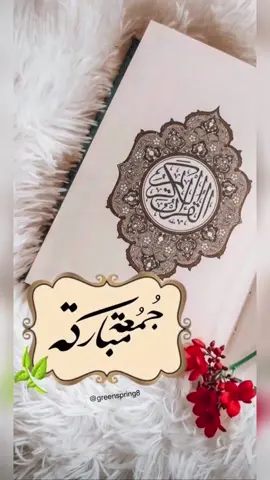 القرآن الكريم
جُمُعَة مباركة
@greenspring8